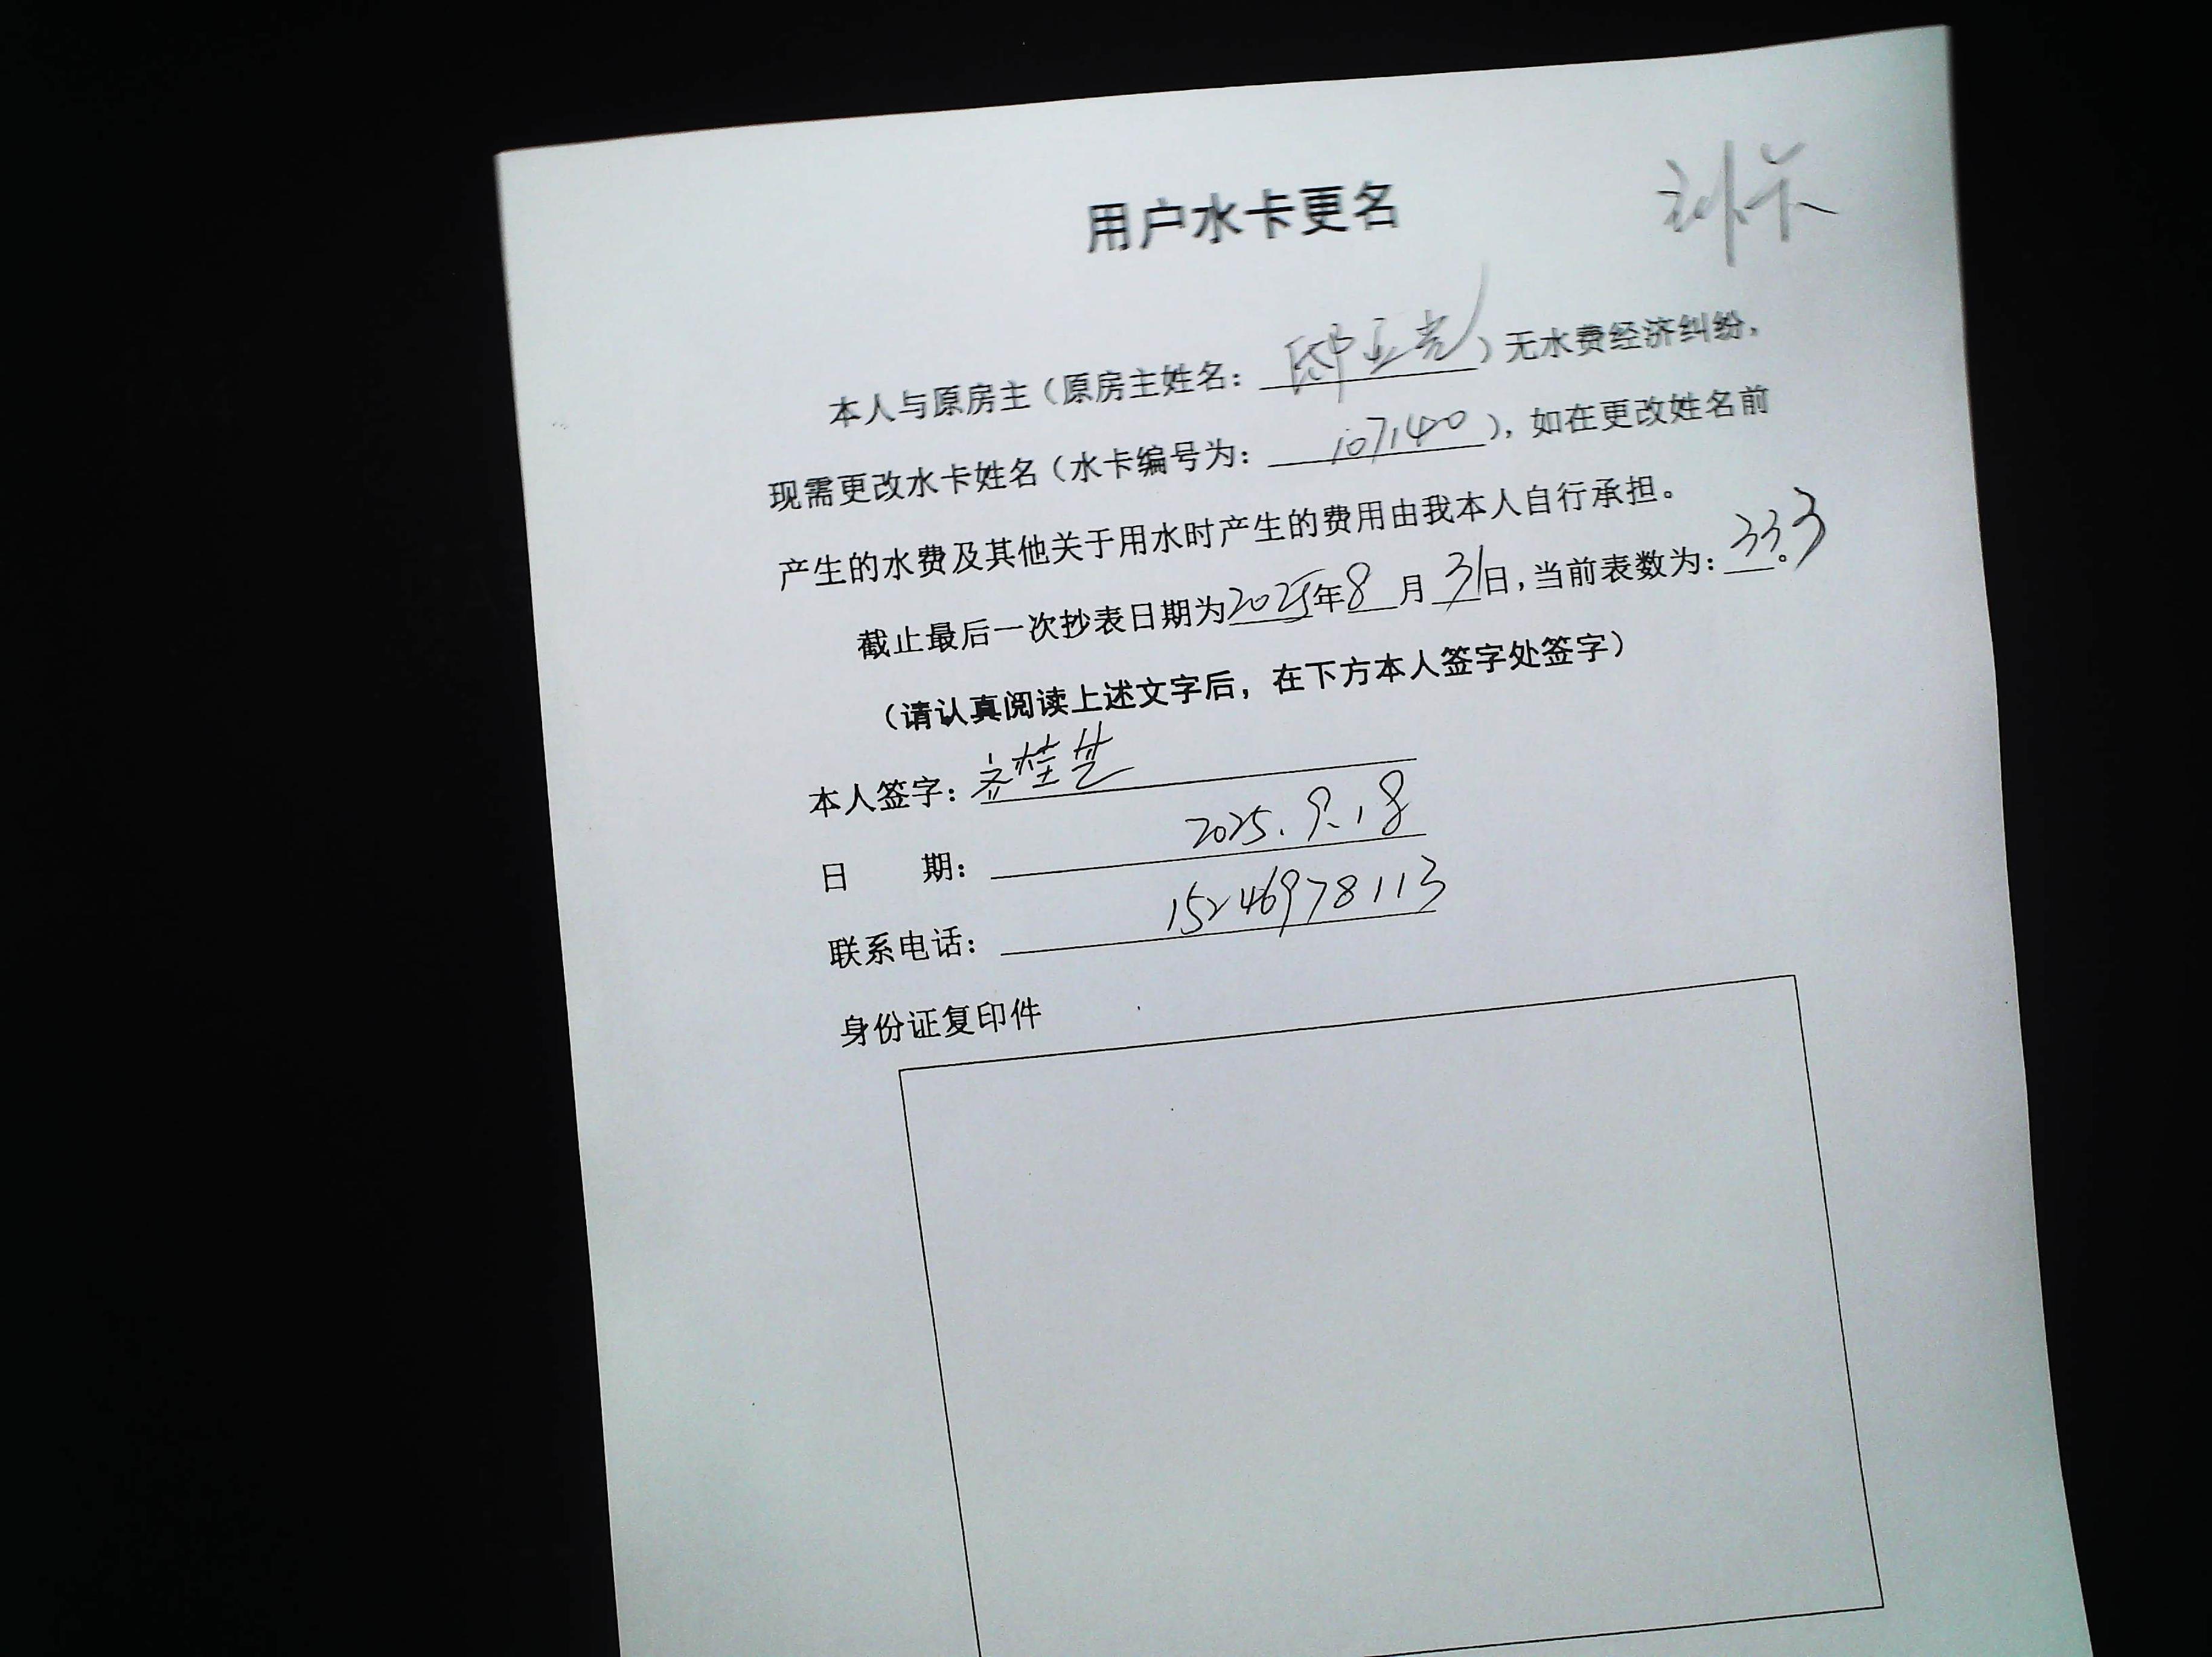 用户水卡更名
补卡
本人与原房主（原房主姓名：邸亚光）无水费经济纠纷，
现需更改水卡姓名（水卡编号为：107140），如在更改姓名前
产生的水费及其他关于用水时产生的费用由我本人自行承担。
截止最后一次抄表日期为2025年8月31日，当前表数为：333。
（请认真阅读上述文字后，在下方本人签字处签字）
本人签字：齐桂芝
日 期：2025.9.18
联系电话：15246978113
身份证复印件